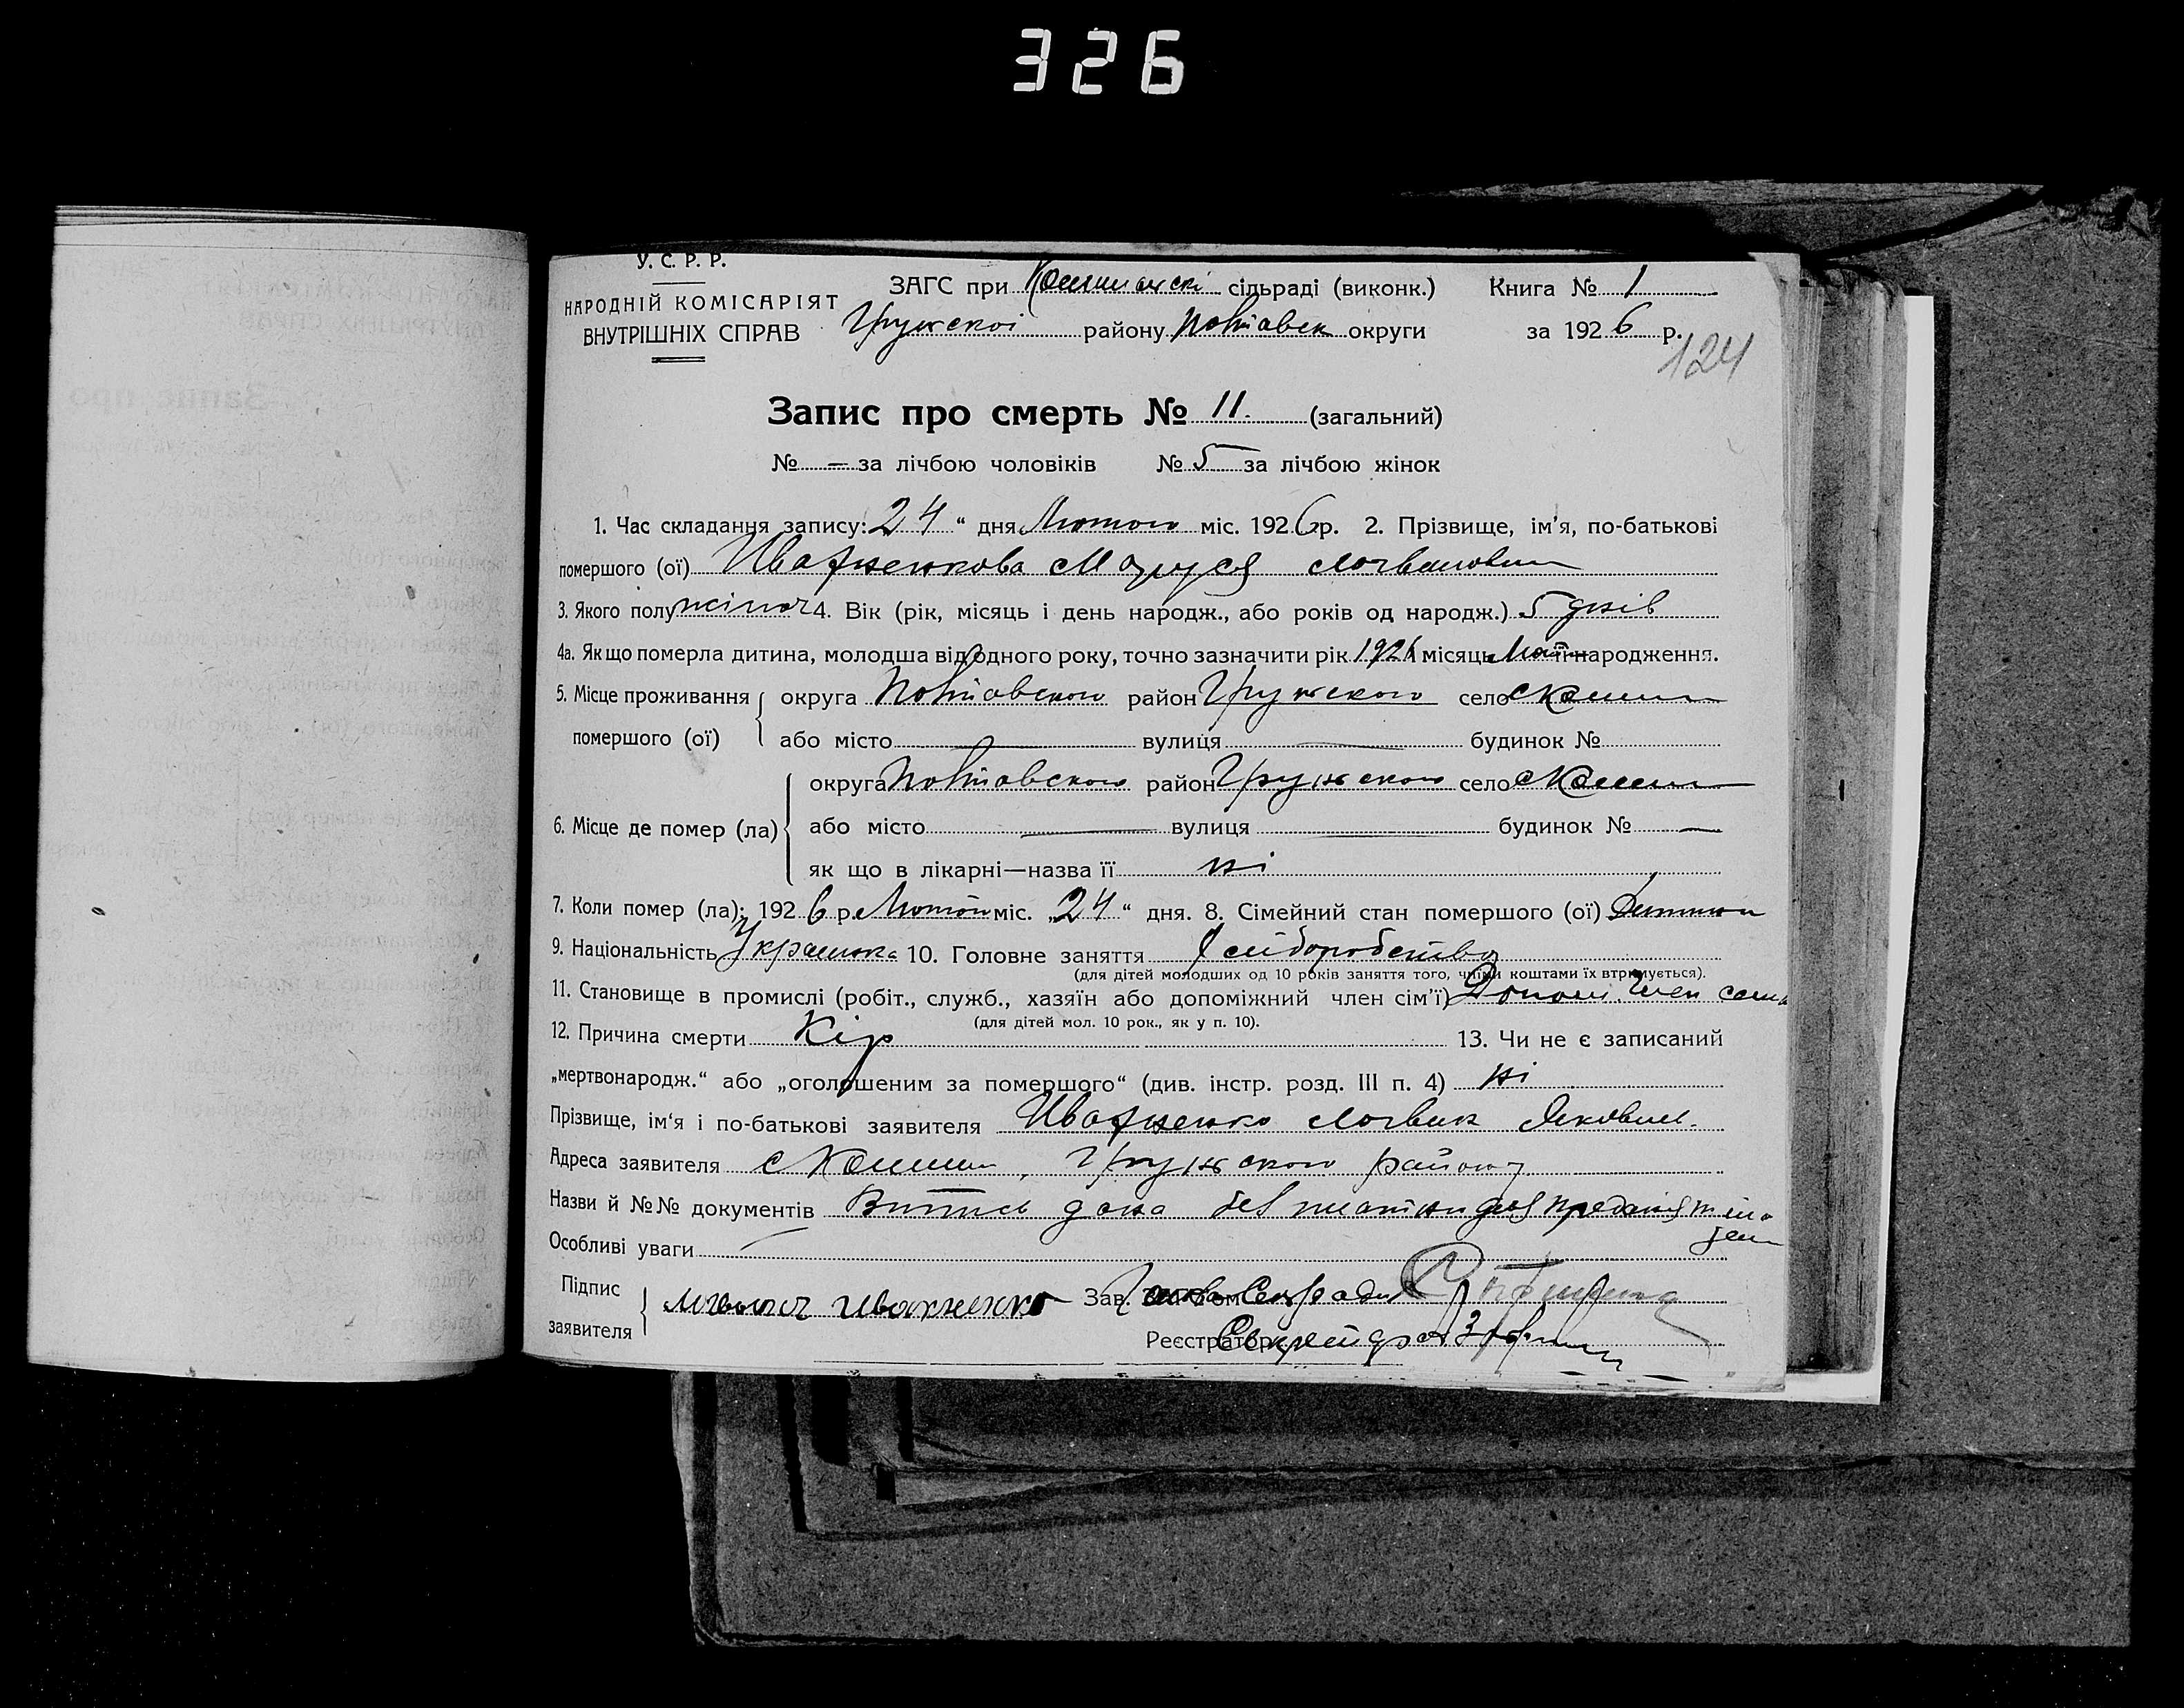 326
У. С. Р. Р.
НАРОДНІЙ КОМІСАРІЯТ
ВНУТРІШНІХ СПРАВ
ЗАГС при сільраді (виконк.) Книга № 1
району Полтавськ округи за 1926 р.
124
Запис про смерть № 11. (загальний)
№ — за лічбою чоловіків № 5 за лічбою жінок
1. Час складання запису: 24 “ дня Лютого міс. 1926 р. 2. Прізвище, ім’я, по-батькові
помершого (ої) Ивахненкова Маруся
3. Якого полу жіноч 4. Вік (рік, місяць і день народж., або років од народж.) 5 днів
4а. Як що померла дитина, молодша від одного року, точно зазначити рік 1926 місяць народження.
5. Місце проживання округа Полтавського район село
помершого (ої) або місто — вулиця — будинок №
округа Полтавського район село
6. Місце де помер (ла) або місто — вулиця — будинок № —
як що в лікарні—назва її ні
7. Коли помер (ла): 1926 р. міс. „24“ дня. 8. Сімейний стан помершого (ої) Дитина
9. Національність Українка 10. Головне заняття
(для дітей молодших од 10 років заняття того, чиїми коштами їх втримується).
11. Становище в промислі (робіт., служб., хазяїн або допоміжний член сім’ї) Допоми. член
(для дітей мол. 10 рок., як у п. 10).
12. Причина смерти Кір 13. Чи не є записаний
„мертвонародж.“ або „оголошеним за помершого“ (див. інстр. розд. III п. 4) ні
Прізвище, ім’я і по-батькові заявителя Ивахненко Логвин Якович.
Адреса заявителя с , району
Назви й №№ документів Витпсь дана без платни для
Особливі уваги —
Підпис
заявителя ивахненко Зав. ЗАГС’ом Голова Сельради
Реєстратор Секретарь